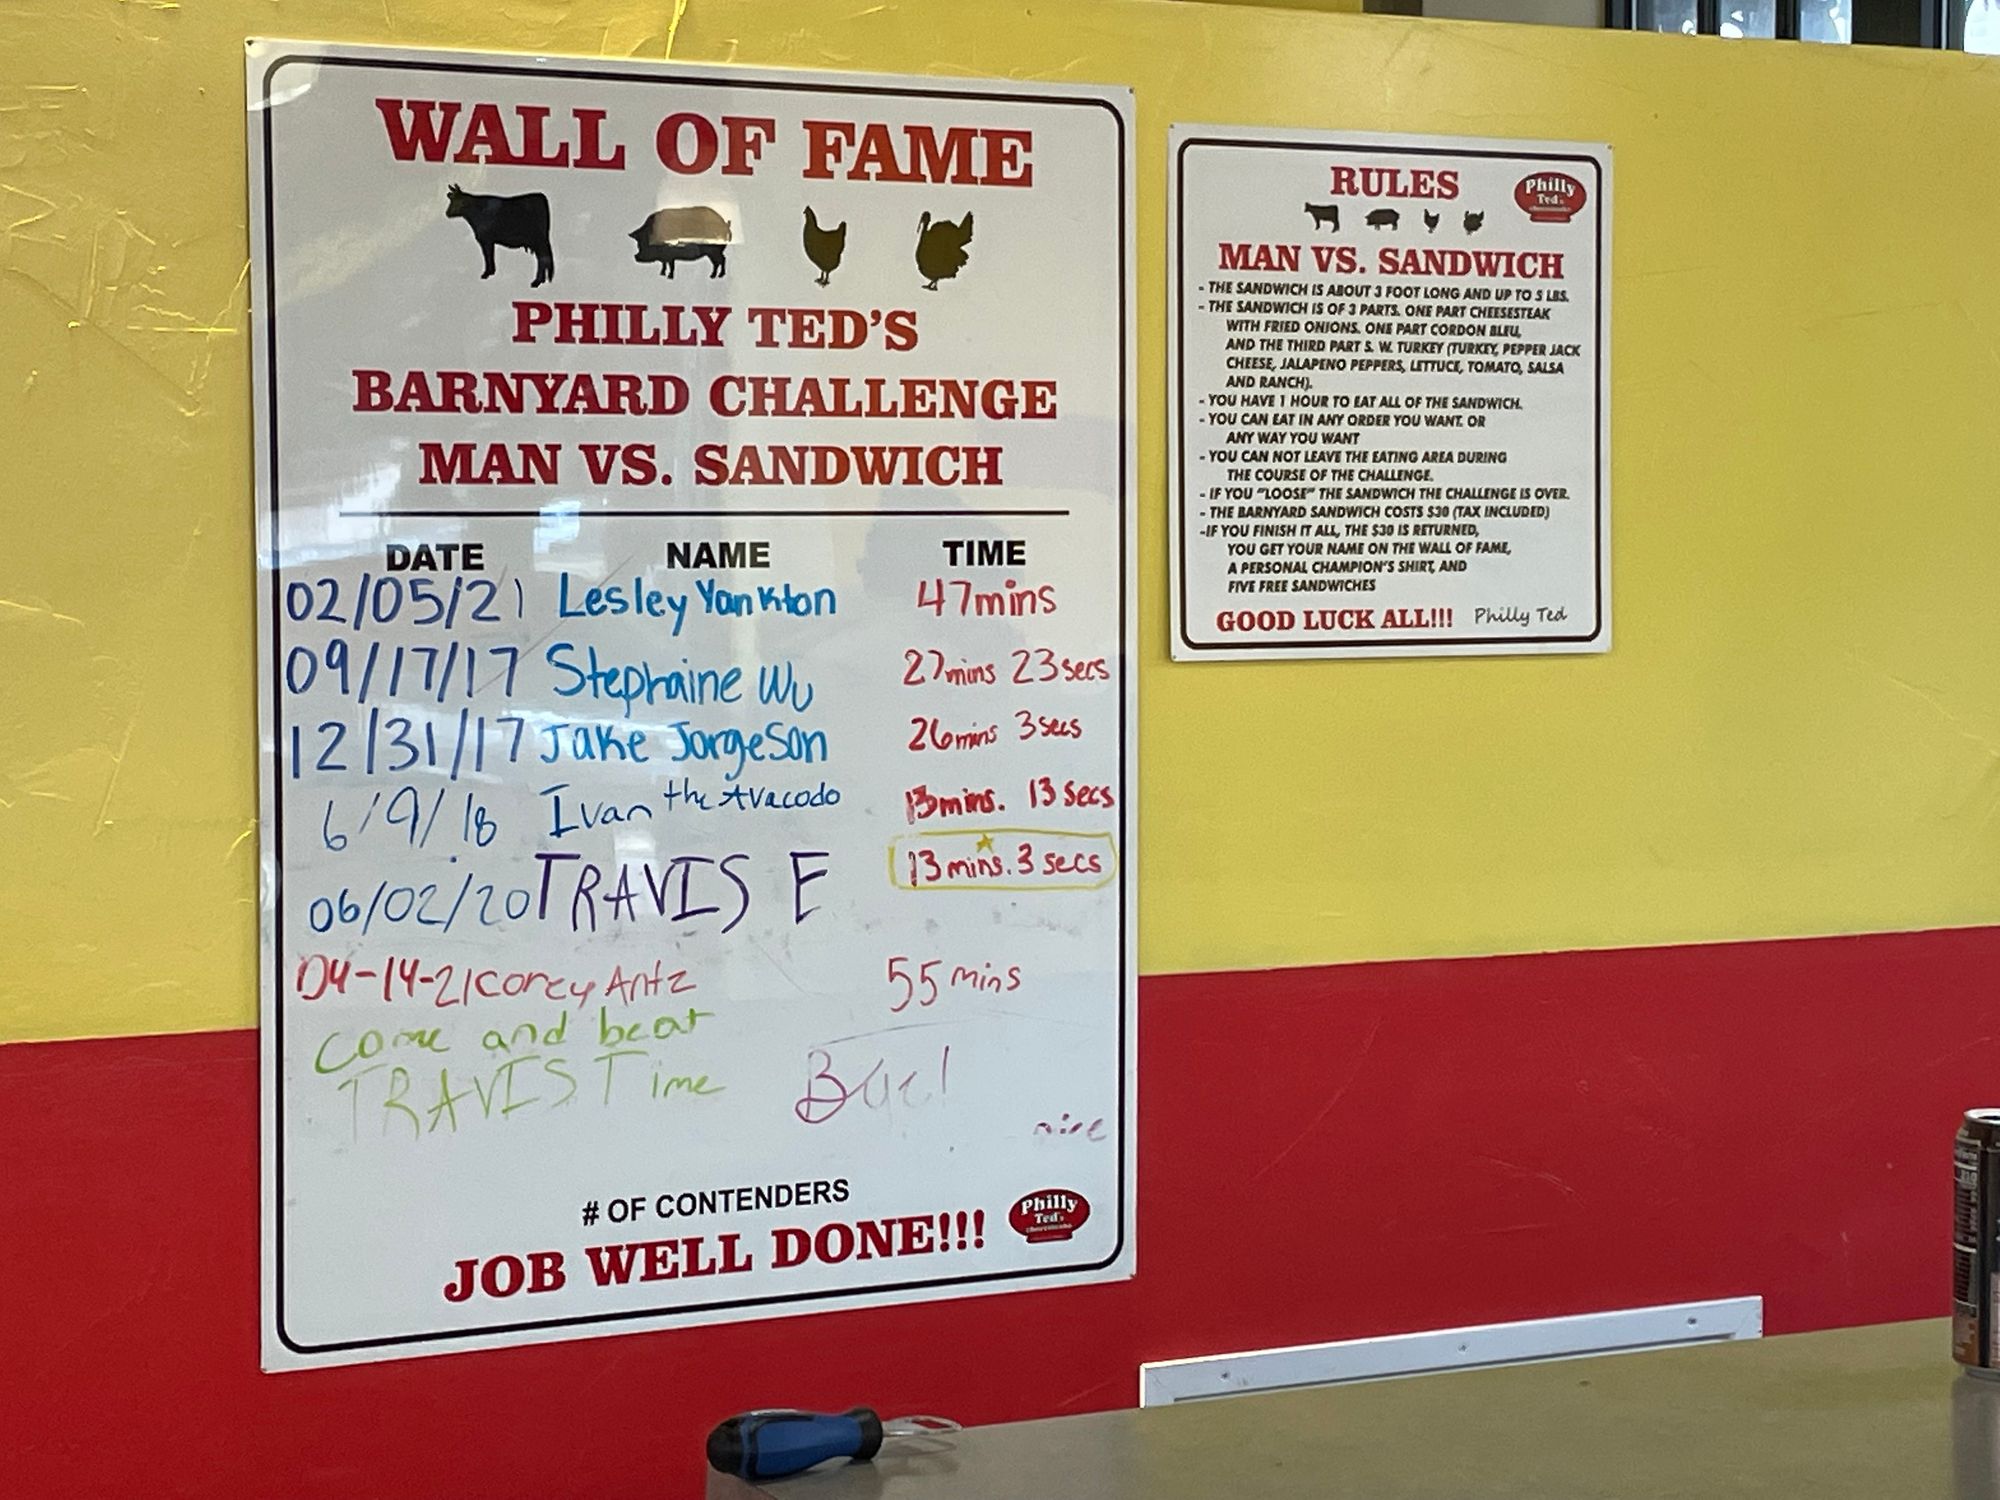 WALL OF FAME
PHILLY TED'S
BARNYARD CHALLENGE
MAN VS. SANDWICH
DATE NAME TIME
02/05/21 Lesley Yankton 47mins
09/17/17 Stephraine Wu 27mins 23secs
12/31/17 Jake Jorgeson 26mins 3secs
6/9/18 Ivan the Avacodo 13mins. 13secs
06/02/20 TRAVIS E 13mins. 3secs
04-14-21 Corey Antz 55mins
Come and beat
TRAVIS Time
# OF CONTENDERS
JOB WELL DONE!!!
Philly
Ted's
RULES
Philly
Ted's
MAN VS. SANDWICH
- THE SANDWICH IS ABOUT 3 FOOT LONG AND UP TO 5 LBS.
- THE SANDWICH IS OF 3 PARTS. ONE PART CHEESESTEAK
WITH FRIED ONIONS. ONE PART CORDON BLEU,
AND THE THIRD PART S. W. TURKEY (TURKEY, PEPPER JACK
CHEESE, JALAPENO PEPPERS, LETTUCE, TOMATO, SALSA
AND RANCH).
- YOU HAVE 1 HOUR TO EAT ALL OF THE SANDWICH.
- YOU CAN EAT IN ANY ORDER YOU WANT. OR
ANY WAY YOU WANT
- YOU CAN NOT LEAVE THE EATING AREA DURING
THE COURSE OF THE CHALLENGE.
- IF YOU "LOOSE" THE SANDWICH THE CHALLENGE IS OVER.
- THE BARNYARD SANDWICH COSTS $30 (TAX INCLUDED)
-IF YOU FINISH IT ALL, THE $30 IS RETURNED,
YOU GET YOUR NAME ON THE WALL OF FAME,
A PERSONAL CHAMPION'S SHIRT, AND
FIVE FREE SANDWICHES
GOOD LUCK ALL!!! Philly Ted